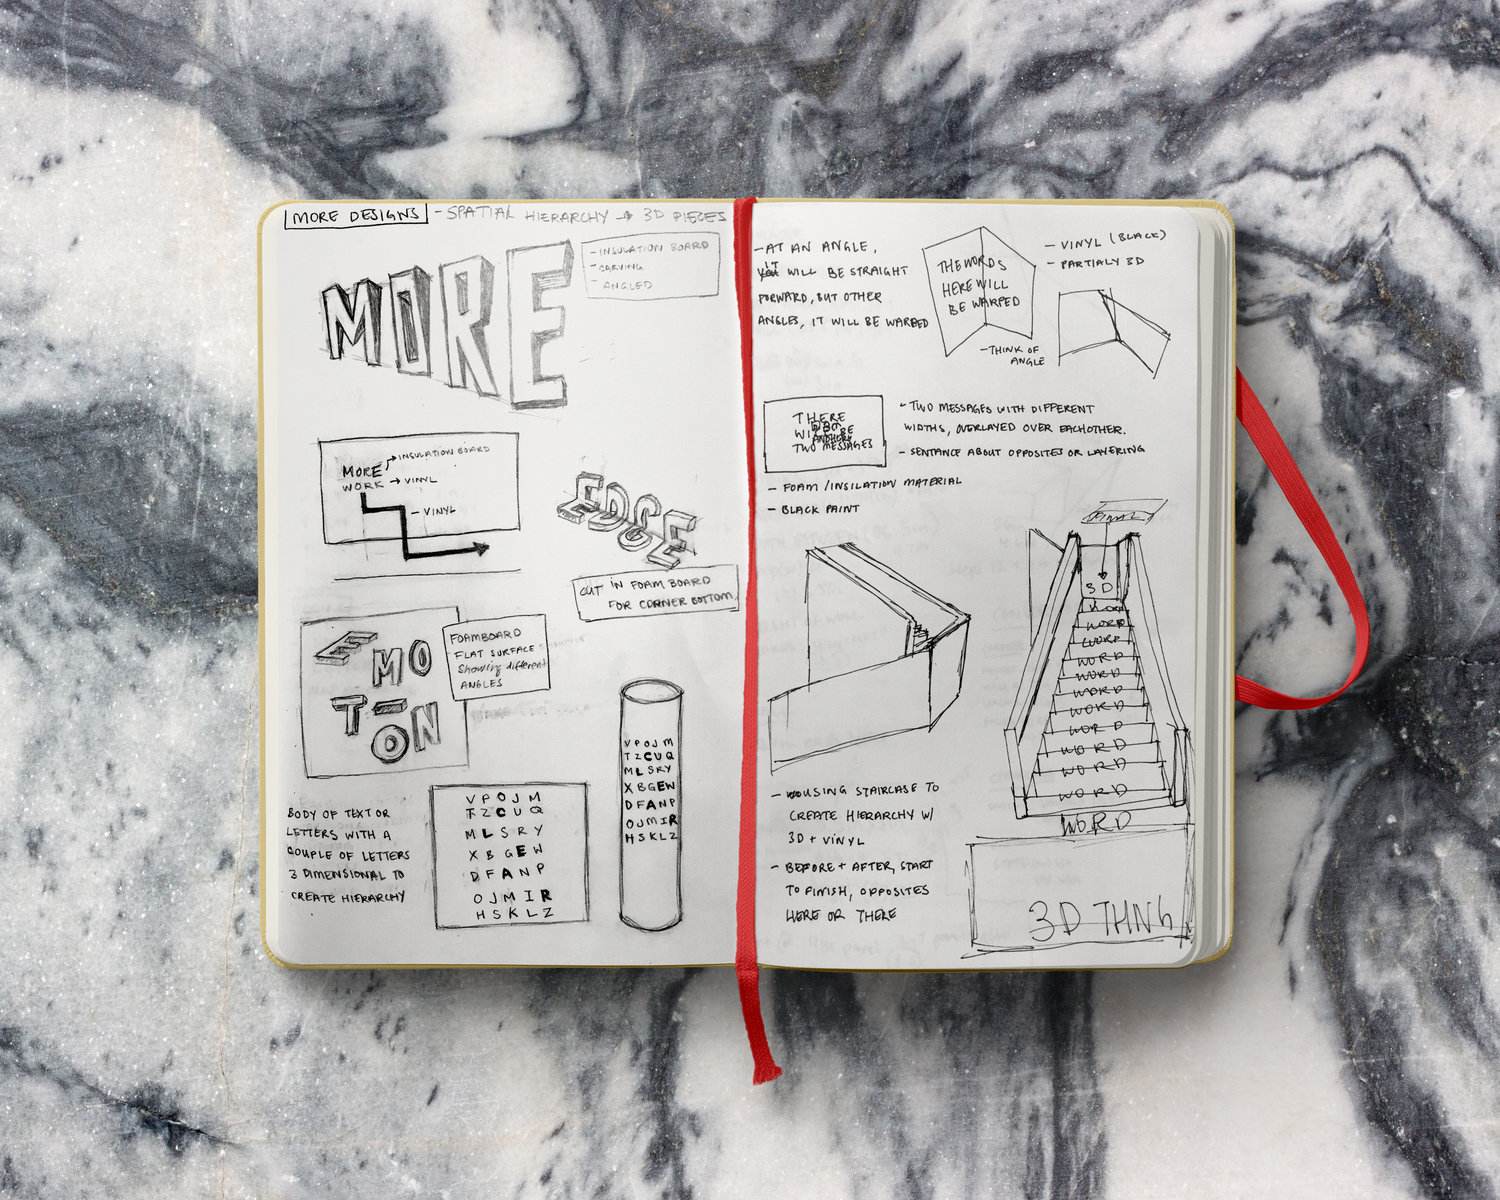 MORE DESIGNS - SPATIAL HIERARCHY → 3D PIECES
MORE
- INSULATION BOARD
- CARVING
- ANGLED
MORE → INSULATION BOARD
WORK → VINYL
- VINYL
EDGE
CUT IN FOAM BOARD
FOR CORNER BOTTOM
E MO
T-ON
FOAMBOARD
FLAT SURFACE
Showing different
ANGLES
BODY OF TEXT OR
LETTERS WITH A
COUPLE OF LETTERS
3 DIMENSIONAL TO
CREATE HIERARCHY
V P O J M
T Z C U Q
M L S R Y
X B G E W
D F A N P
O J M I R
H S K L Z
V P O J M
T Z C U Q
M L S R Y
X B G E W
D F A N P
O J M I R
H S K L Z
- AT AN ANGLE,
IT WILL BE STRAIGHT
FORWARD, BUT OTHER
ANGLES, IT WILL BE WARPED
THE WORDS
HERE WILL
BE WARPED
- VINYL (BLACK)
- PARTIALY 3D
- THINK OF
ANGLE
THERE
WILL BE
TWO MESSAGES
- TWO MESSAGES WITH DIFFERENT
WIDTHS, OVERLAYED OVER EACHOTHER.
- SENTANCE ABOUT OPPOSITES OR LAYERING
- FOAM / INSILATION MATERIAL
- BLACK PAINT
- USING STAIRCASE TO
CREATE HIERARCHY W/
3D + VINYL
- BEFORE + AFTER, START
TO FINISH, OPPOSITES
HERE OR THERE
3D
WORD
WORD
WORD
WORD
WORD
WORD
WORD
WORD
WORD
WORD
WORD
WORD
3D THNG